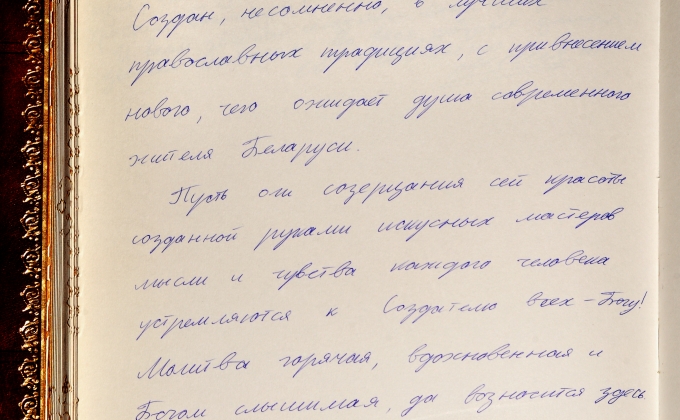 Создан, несомненно, в лучших
православных традициях, с привнесением
нового, чего ожидает душа современного
жителя Беларуси.
Пусть от созерцания сей красоты
созданной руками искусных мастеров
мысли и чувства каждого человека
устремляются к Создателю всех - Богу!
Молитва горячая, вдохновенная и
Богом слышимая, да возносится здесь